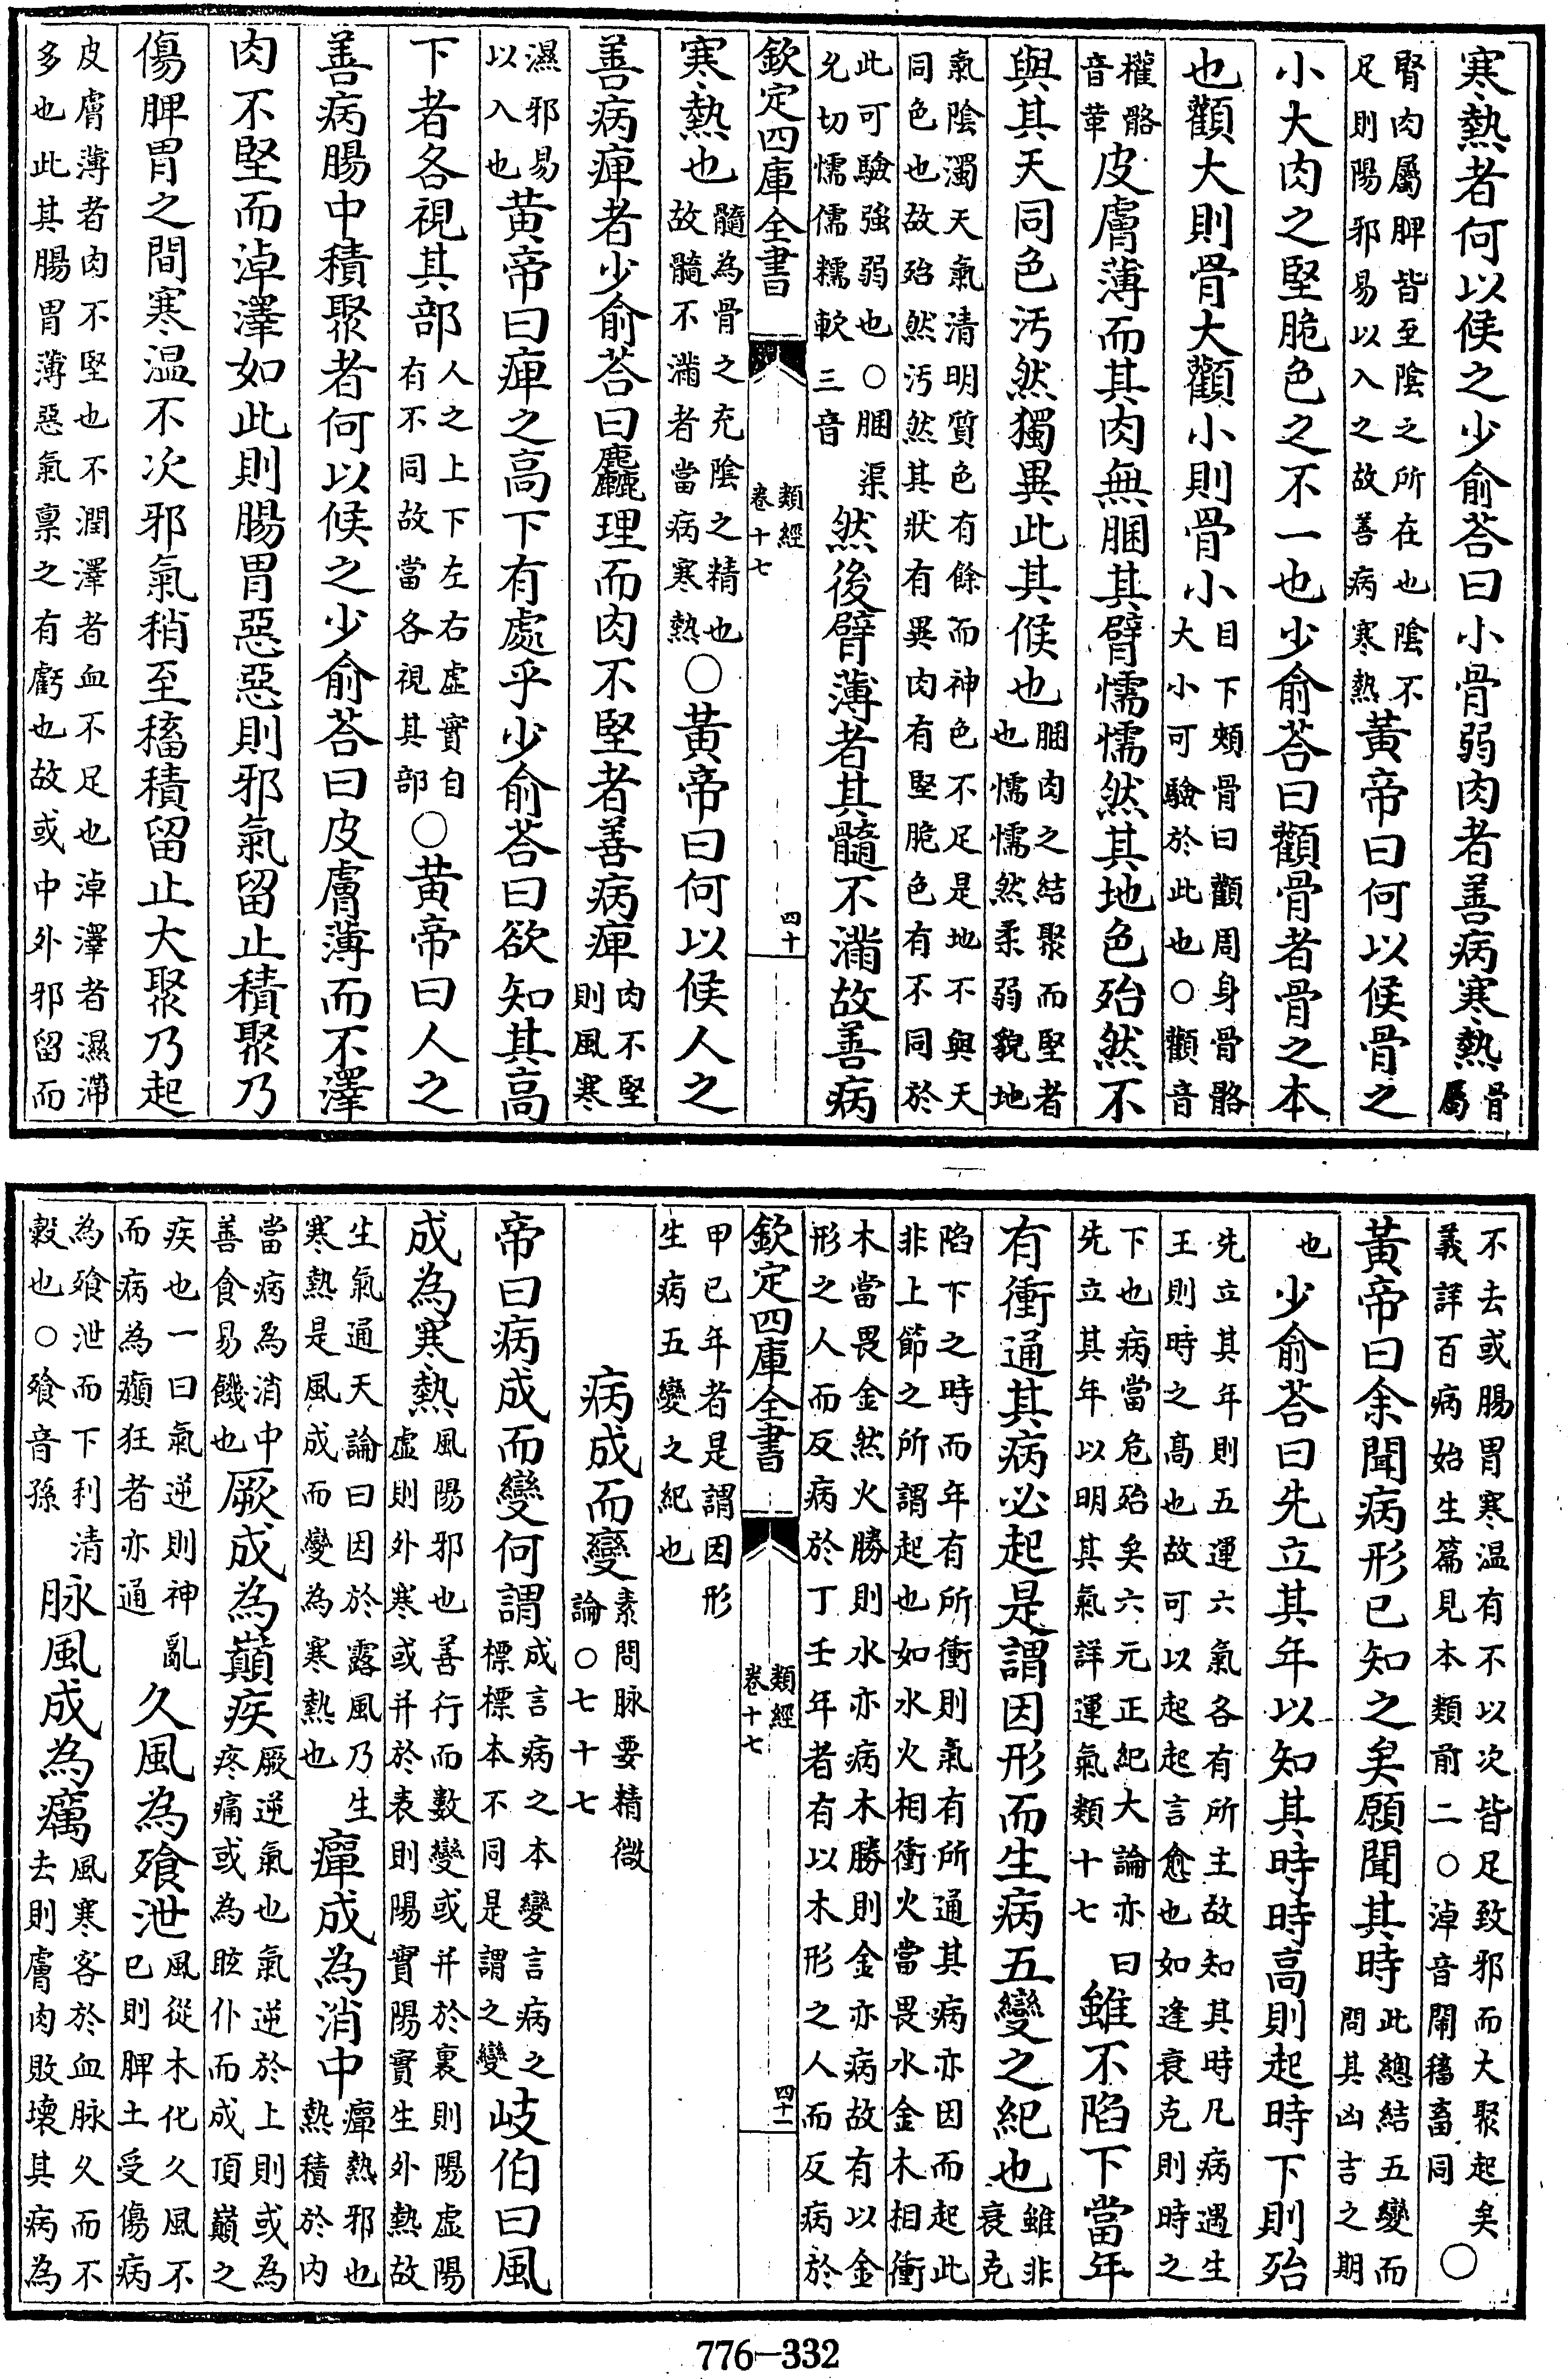 寒熱者何以候之少俞荅曰小骨弱肉者善病寒熱骨屬
腎肉屬脾皆至陰之所在也陰不足則陽邪易以入之故善病寒熱黃帝曰何以候骨之
小大肉之堅脆色之不一也少俞荅曰顴骨者骨之本
也顴大則骨大顴小則骨小目下頰骨曰顴周身骨骼大小可驗於此也○顴音
權骼音革皮膚薄而其肉無䐃其臂懦懦然其地色殆然不
與其天同色汚然獨異此其候也䐃肉之結聚而堅者也懦懦然柔弱貌地
氣陰濁天氣清明質色有餘而神色不足是地不與天同色也故殆然汚然其狀有異肉有堅脆色有不同於
此可驗強弱也○䐃渠允切懦儒糯軟三音然後臂薄者其髓不滿故善病
欽定四庫全書 類經卷十七 四十
寒熱也髓為骨之充陰之精也故髓不滿者當病寒熱○黃帝曰何以候人之
善病痺者少俞荅曰麤理而肉不堅者善病痺肉不堅則風寒
濕邪易以入也黃帝曰痺之高下有處乎少俞荅曰欲知其高
下者各視其部人之上下左右虛實自有不同故當各視其部○黃帝曰人之
善病腸中積聚者何以候之少俞荅曰皮膚薄而不澤
肉不堅而淖澤如此則腸胃惡惡則邪氣留止積聚乃
傷脾胃之間寒温不次邪氣稍至稸積留止大聚乃起
皮膚薄者肉不堅也不潤澤者血不足也淖澤者濕滯多也此其腸胃薄惡氣禀之有虧也故或中外邪留而
不去或腸胃寒温有不以次皆足致邪而大聚起矣義詳百病始生篇見本類前二○淖音鬧稸畜同○
黃帝曰余聞病形已知之矣願聞其時此總結五變而問其凶吉之期
也少俞荅曰先立其年以知其時時高則起時下則殆
先立其年則五運六氣各有所主故知其時凡病遇生王則時之高也故可以起起言愈也如逢衰克則時之
下也病當危殆矣六元正紀大論亦曰先立其年以明其氣詳運氣類十七雖不陷下當年
有衝通其病必起是謂因形而生病五變之紀也雖非衰克
陷下之時而年有所衝則氣有所通其病亦因而起此非上節之所謂起也如水火相衝火當畏水金木相衝
木當畏金然火勝則水亦病木勝則金亦病故有以金形之人而反病於丁壬年者有以木形之人而反病於
欽定四庫全書 類經卷十七 四十一
甲己年者是謂因形生病五變之紀也
病成而變素問脉要精微論○七十七
帝曰病成而變何謂成言病之本變言病之標標本不同是謂之變岐伯曰風
成為寒熱風陽邪也善行而數變或并於裏則陽虛陽虛則外寒或并於表則陽實陽實生外熱故
生氣通天論曰因於露風乃生寒熱是風成而變為寒熱也癉成為消中癉熱邪也熱積於内
當病為消中善食易饑也厥成為巔疾厥逆氣也氣逆於上則或為疼痛或為眩仆而成頂巔之
疾也一曰氣逆則神亂而病為癲狂者亦通久風為飱泄風從木化久風不已則脾土受傷病
為飱泄而下利清穀也○飱音孫脉風成為癘風寒客於血脉久而不去則膚肉敗壞其病為
776-332